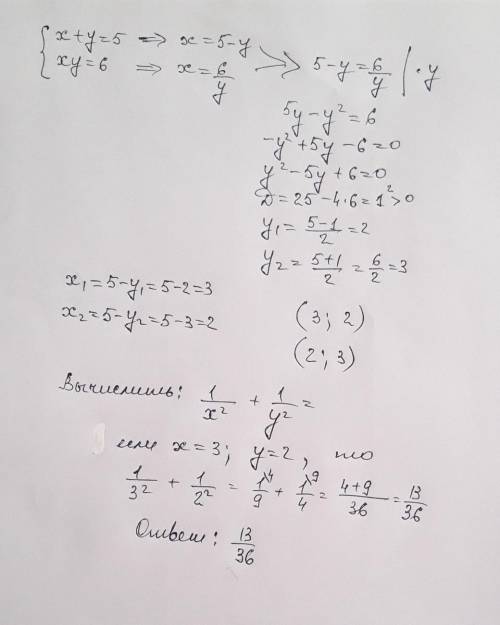 { x+y=5 ⇒ x=5-y
xy=6 ⇒ x=6/y > 5-y=6/y | ·y
5y-y²=6
-y²+5y-6=0
y²-5y+6=0
D=25-4·6=1²>0
y₁=(5-1)/2=2
y₂=(5+1)/2=6/2=3
x₁=5-y₁=5-2=3
x₂=5-y₂=5-3=2
(3; 2)
(2; 3)
Вычислить: 1/x² + 1/y² =
если x=3; y=2, то
1/3² + 1/2² = 1\4/9 + 1\9/4 = (4+9)/36 = 13/36
Ответ: 13/36